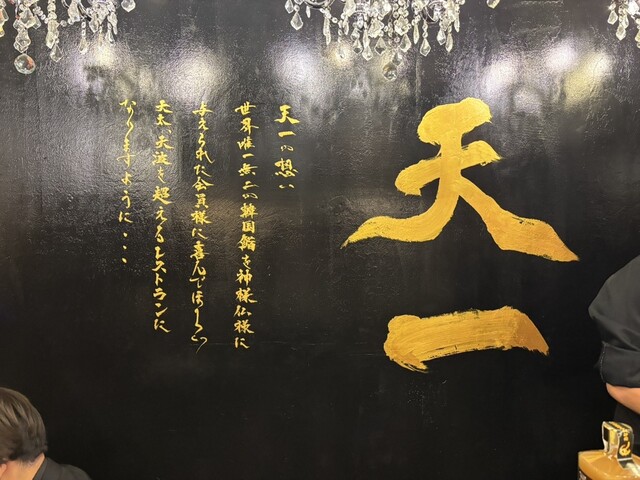 天一
天一の想い
世界唯一無二の韓国鍋を神様仏様に
与えられた会員様に喜んでほしい
天太、天波を超えるレストランに
なりますように・・・